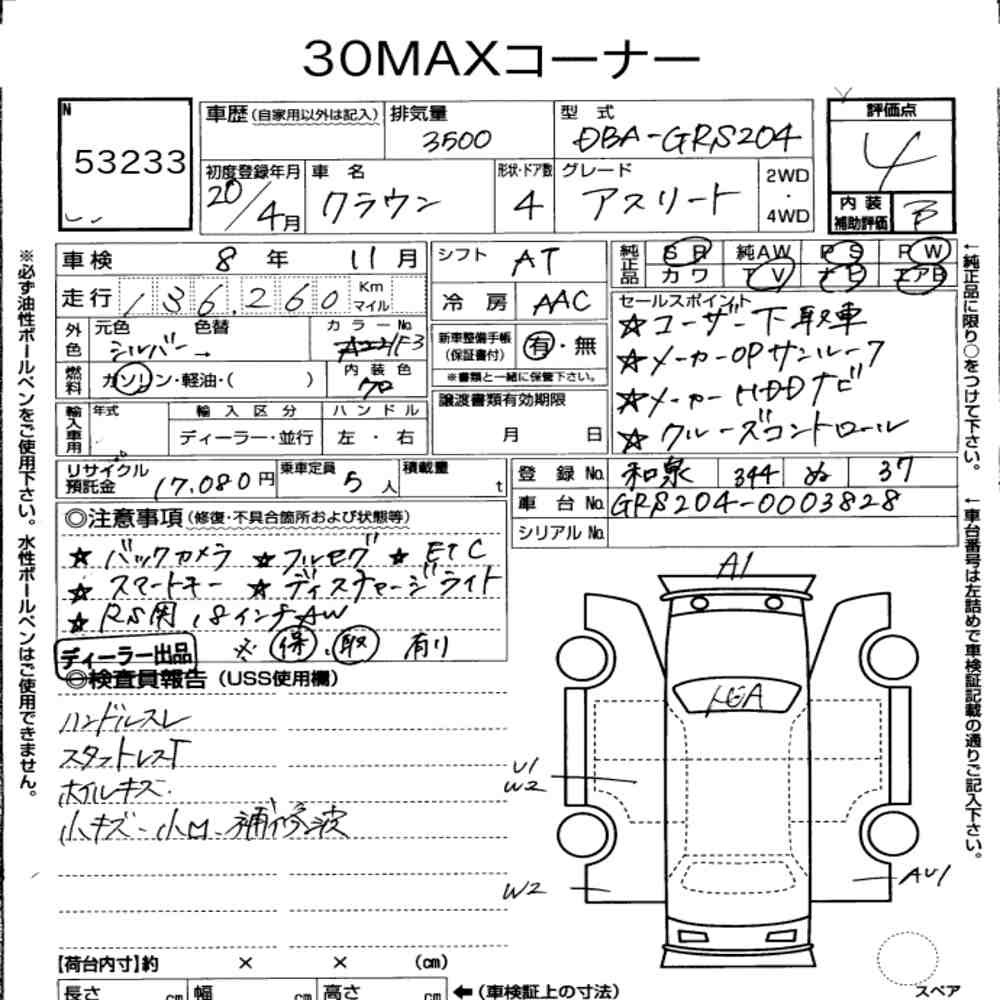 30MAXコーナー
N
53233
車歴 (自家用以外は記入)
排気量
3500
型 式
DBA-GRS204
評価点
4
初度登録年月
20/4月
車 名
クラウン
形状・ドア数
4
グレード
アスリート
2WD
・
4WD
内 装
補助評価
B
車 検 8 年 11 月
走 行 136,260 Km マイル
シフト AT
冷 房 AAC
純正品 SR 純AW PS PW
カワ TV ナビ エアB
外色 元色 色替
シルバー →
カラーNo.
1F3
燃料 ガソリン・軽油・( )
内 装 色
新車整備手帳
(保証書付)
有・無
※書類と一緒に保管下さい。
セールスポイント
☆ユーザー下取車
☆メーカーOPサンルーフ
☆メーカーHDDナビ
☆クルーズコントロール
輸入車用 年式
輸 入 区 分
ディーラー・並行
ハ ン ド ル
左 ・ 右
譲渡書類有効期限
月 日
リサイクル
預託金 17,080円
乗車定員 5 人
積載量 t
登 録 No. 和泉 344 ぬ 37
車 台 No. GRS204-0003828
シリアル No.
◎注意事項 (修復・不具合箇所および状態等)
☆ バックカメラ ☆ フルセグ ☆ ETC
☆ スマートキー ☆ ディスチャージライト
☆ RS用18インチAW
ディーラー出品
※ 保、取 有り
◎検査員報告 (USS使用欄)
ハンドルスレ
ホイルキズ
小キズ・小凹・補修波
A1
U1
W2
W2
AU1
【荷台内寸】約 × × (cm)
長さ cm 幅 cm 高さ cm
←(車検証上の寸法)
スペア
※必ず油性ボールペンをご使用下さい。水性ボールペンはご使用できません。
←純正品に限り○をつけて下さい。
←車台番号は左詰めで車検証記載の通りご記入下さい。